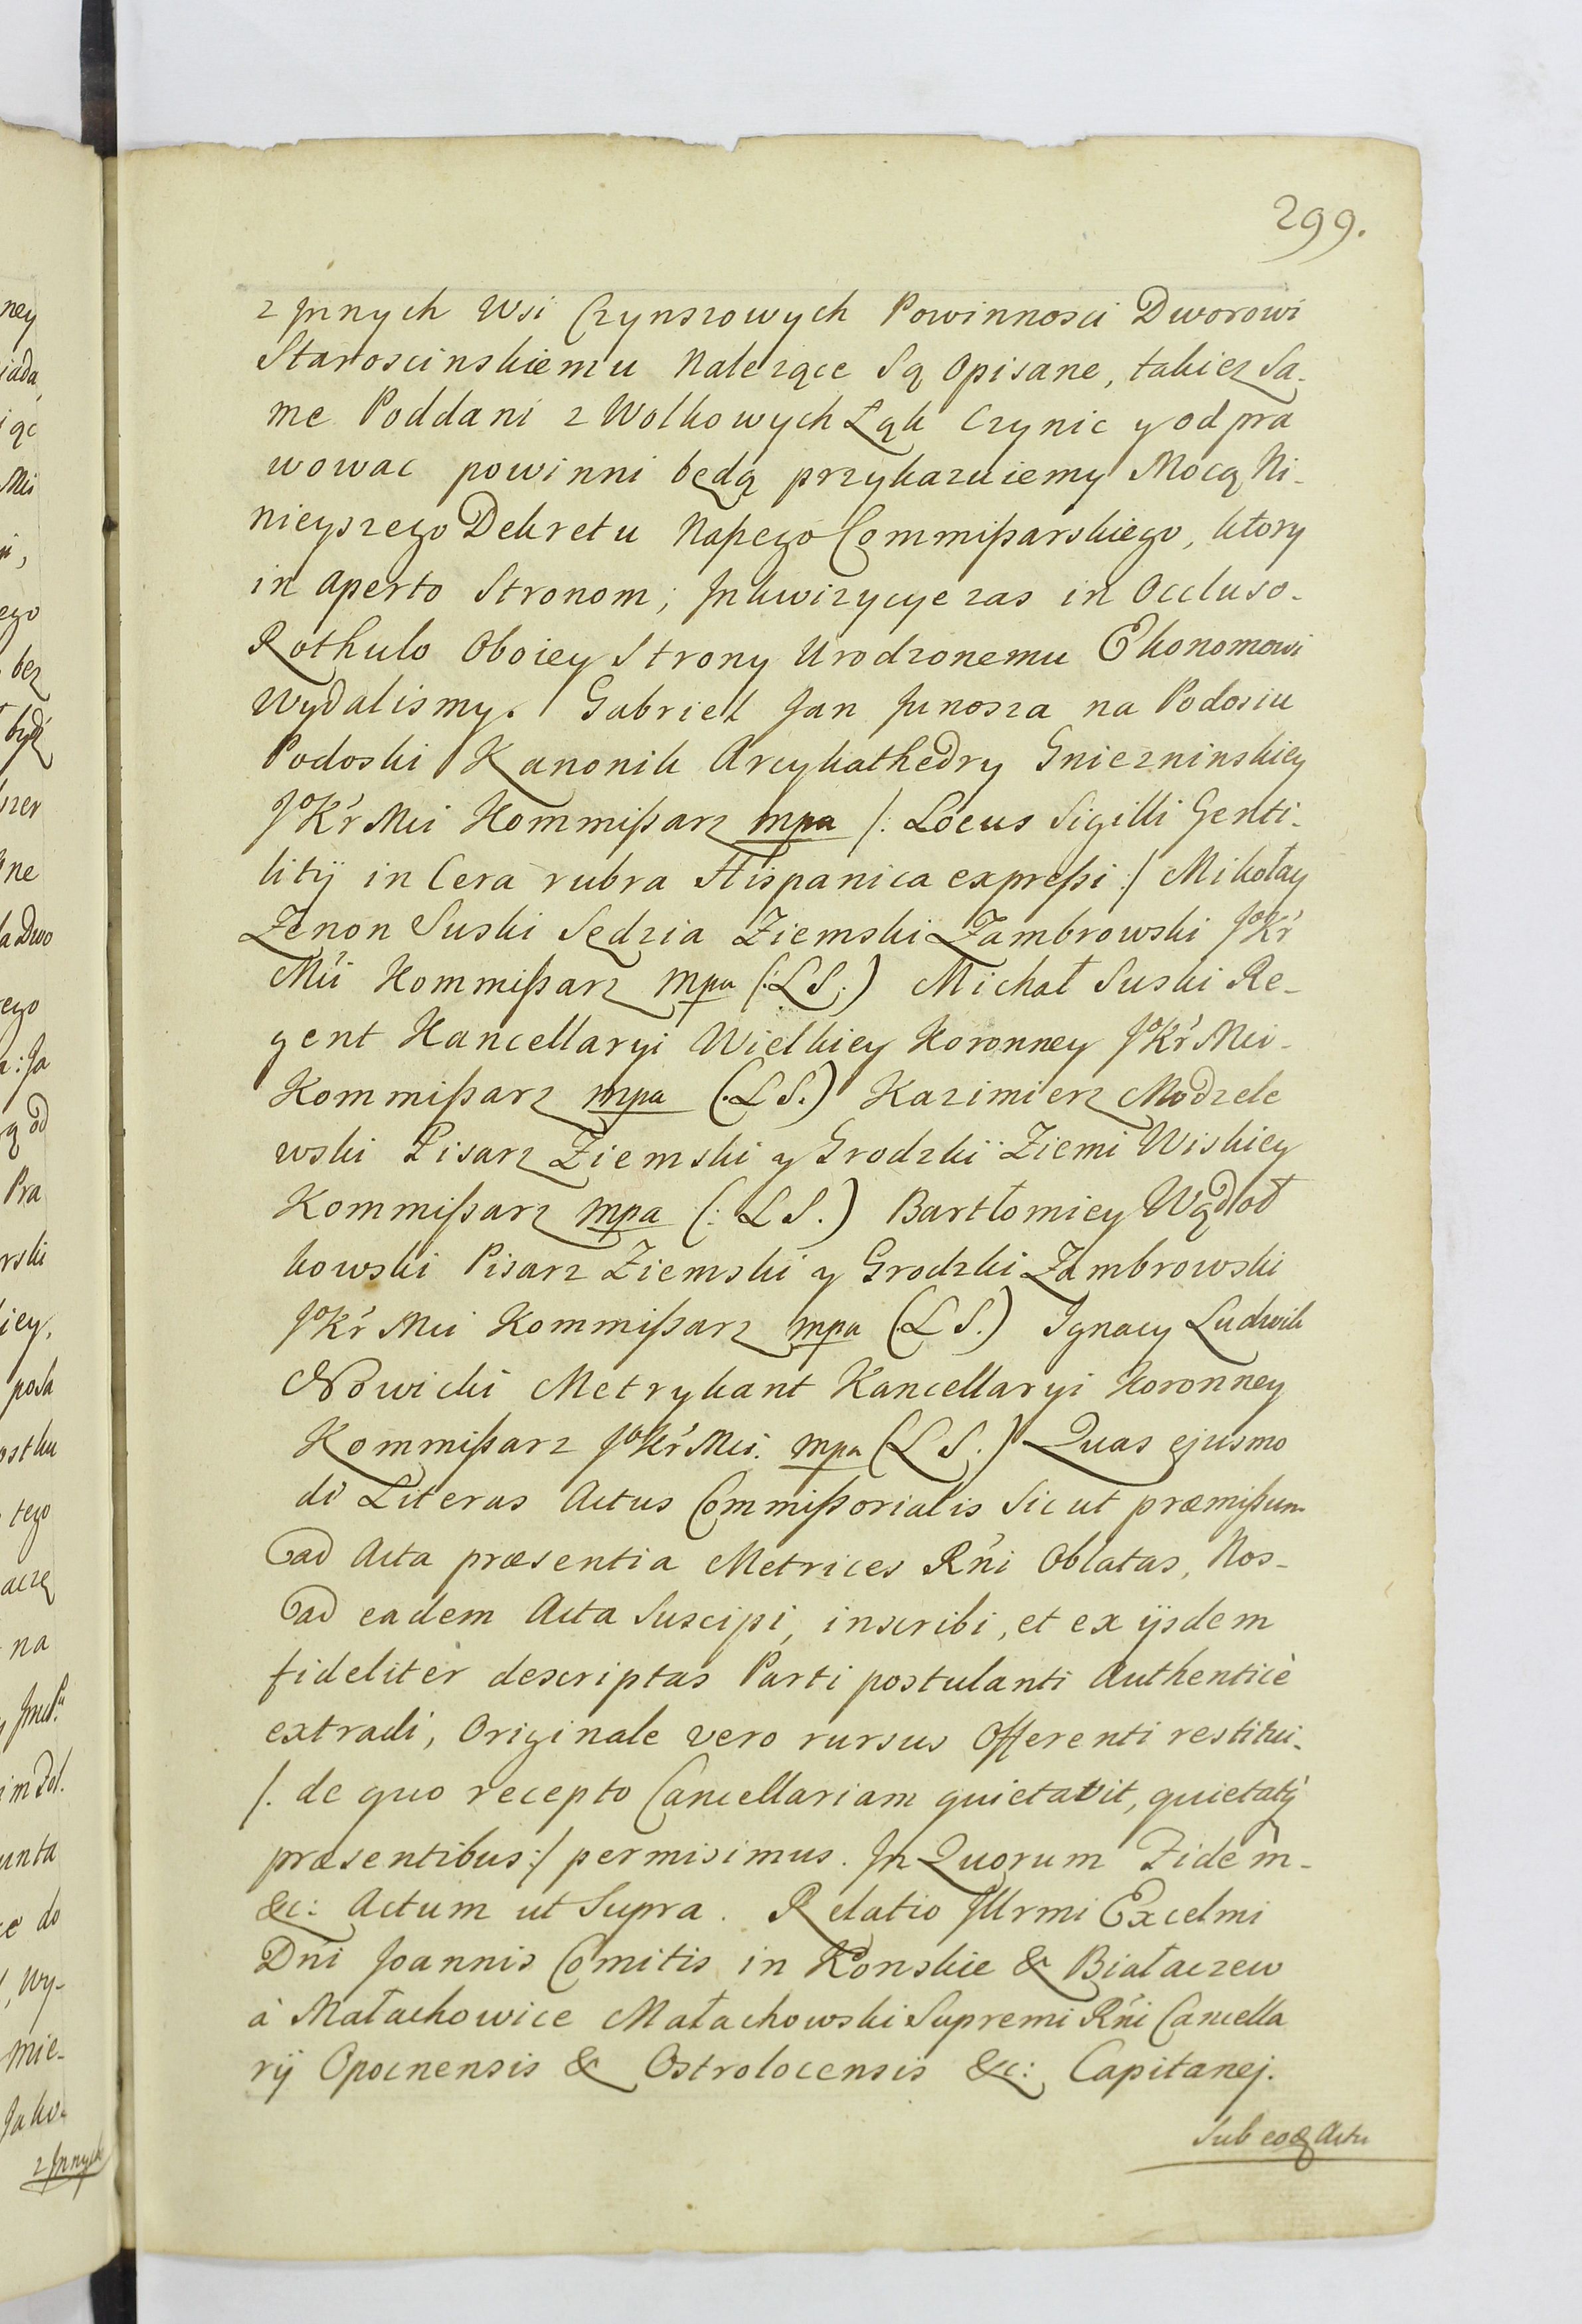 299.
z Jnnych Wsi Czynszowych Powinnosci Dworowi
Staroscinskiemu Nalezące Są Opisane, takiez Sa-
me Poddani z Wolkowych Łąk Czynic y odpra
wowac powinni będą przykazuiemy Mocą Ni-
nieyszego Dekretu Naßego Commißarskiego, ktory
in Aperto Stronom; Jnkwizycye zas in Occluso-
Rothulo Oboiey Strony Urodzonemu Ekonomowi
Wydalismy. Gabriel Jan Junosza na Podosiu
Podoski Kanonik Arcykathedry Gniezninskiey
JoKr Mci Kommißarz mpa /: Locus Sigilli Genti-
litij in Cera rubra Hispanica expreßi :/ Mikołay
Zenon Suski Sędzia Ziemski Zambrowski JoKr
Mci Kommißarz mpa (:LS:) Michał Suski Re-
gent Kancellaryi Wielkiey Koronney JoKr Mci-
Kommißarz mpa (:LS.) Kazimierz Modzele
wski Pisarz Ziemski y Grodzki Ziemi Wiskiey
Kommißarz mpa (: LS.) Bartłomiey Wądoł
kowski Pisarz Ziemski y Grodzki Zambrowski
JoKr Mci Kommißarz mpa (:LS.) Ignacy Ludwik
Nowicki Metrykant Kancellaryi Koronney
Kommißarz JoKr Mci. mpa (LS.) Quas ejusmo
di Literas Actus Commißorialis Sic ut præmißum
ad Acta præsentia Metrices Rńi Oblatas, Nos-
ad eadem Acta Suscipi, inscribi, et ex ijsdem
fideliter descriptas Parti postulanti Authenticè
extradi, Originale vero rursus Offerenti restitui-
/: de quo recepto Cancellariam quietavit, quietatq́
præsentibus :/ permisimus. In Quorum Fidem-
&c: Actum ut Supra. Relatio Jllrmi Excelmi
Dńi Joannis Comitis in Konskie & Białaczew
à Małachowice Małachowski Supremi Rńi Cancella
rij Opocnensis & Ostrolocensis &c: Capitanej.
Sub eoq Actu
ney
bez
ne
ego
Pra
rski
iey,
posa
tego
na
do
Wy-
mie-
Jako
z Jnnych